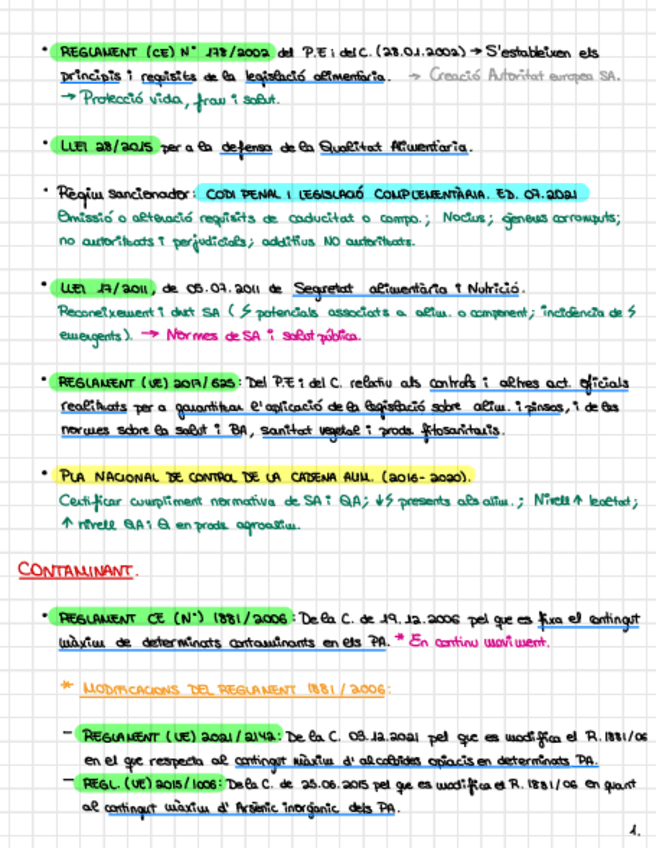 · REGLAMENT (CE) N° 178/2002 del P.E i del C. (28.01.2002) → S'estableixen els
principis i requisits de la legislació alimentària. → Creació Autoritat europea SA.
→ Protecció vida, frau i salut.
· LLEI 28/2015 per a la defensa de la Qualitat Alimentària.
· Règim sancionador: CODI PENAL I LEGISLACIÓ COMPLEMENTÀRIA. ED. 07.2021
Omissió o alteració requisits de caducitat o compo.; Nocius; gèneres corromputs;
no autoritzats i perjudicials; additius NO autoritzats.
· LLEI 17/2011, de 05.07.2011 de Seguretat alimentària i Nutrició.
Reconeixement i dret SA (⚡ potencials associats a alim. o component; incidència de ⚡
emergents). → Normes de SA i salut pública.
· REGLAMENT (UE) 2017/625: Del P.E i del C. relatiu als controls i altres act. oficials
realitzats per a garantitzar l'aplicació de la legislació sobre alim. i pinsos, i de les
normes sobre la salut i BA, sanitat vegetal i prods. fitosanitaris.
· PLA NACIONAL DE CONTROL DE LA CADENA ALIM. (2016-2020).
Certificar cumpliment normativa de SA i QA; ↓⚡ presents als alim.; Nivell ↑ lealtad;
↑ nivell QA i Q en prods. agroalim.
CONTAMINANT.
· REGLAMENT CE (N°) 1881/2006: De la C. de 19.12.2006 pel que es fixa el contingut
màxim de determinats contaminants en els PA. * En continu moviment.
* MODIFICACIONS DEL REGLAMENT 1881/2006:
- REGLAMENT (UE) 2021/2142: De la C. 03.12.2021 pel que es modifica el R.1881/06
en el que respecta al contingut màxim d'alcaloides opiacis en determinats PA.
- REGL. (UE) 2015/1006: De la C. de 25.06.2015 pel que es modifica el R. 1881/06 en quant
al contingut màxim d'Arsènic inorgànic dels PA.
1.